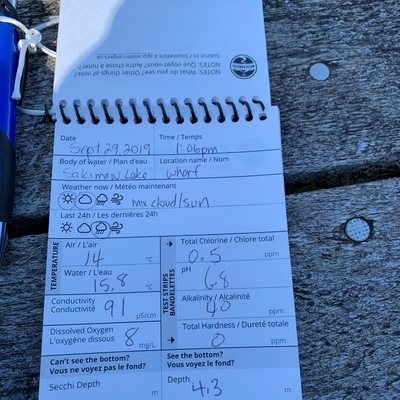 Submit to / Soumettre à app.waterrangers.ca
NOTES: Que voyez-vous? Autre chose à noter?
NOTES: What do you see? Other things of note?
Date
Sept 29, 2019
Time / Temps
1:06pm
Body of water / Plan d'eau
Sakimew Lake
Location name / Nom
wharf
Weather now / Météo maintenant
mix cloud/sun
Last 24h / Les dernières 24h
TEMPERATURE
Air / L'air
14 °C
Water / L'eau
15.8 °C
Conductivity
Conductivité
91 µS/cm
Dissolved Oxygen
L'oxygène dissous
8 mg/L
Can't see the bottom?
Vous ne voyez pas le fond?
Secchi Depth
m
TEST STRIPS
BANDELETTES
Total Chlorine / Chlore total
0.5 ppm
pH
6.8
Alkalinity / Alcalinité
40 ppm
Total Hardness / Dureté totale
0 ppm
See the bottom?
Vous voyez le fond?
Depth
4.3 m